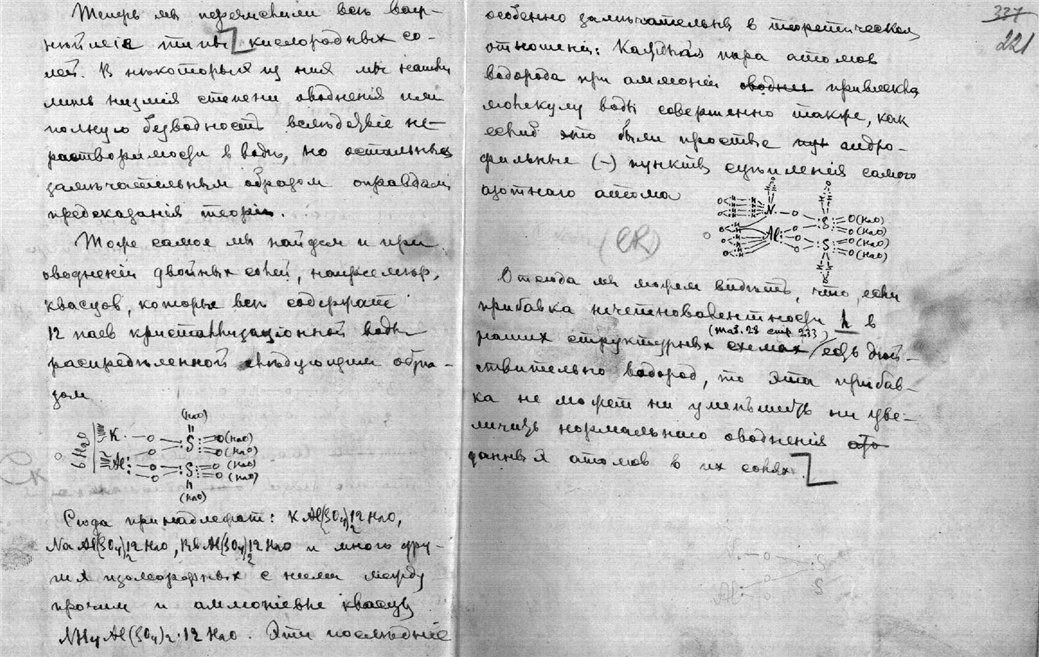 Теперь мы перечислили всѣ важ-
нѣйшіе типы кислородныхъ со-
лей. В нѣкоторыхъ из них мы нашли
лишь низшія степени оводненія или
полную безводность вслѣдствіе не-
растворимости в водѣ, но остальные
замѣчательным образом оправдали
предсказанія теоріи.
Тоже самое мы найдем и при
оводненіи двойных солей, напримѣр,
квасцов, которые всѣ содержат
12 паев кристаллизаціонной воды
распредѣленной слѣдующим обра-
зом
(H2O)
K O S O(H2O)
6H2O O O(H2O)
Al O S O(H2O)
O O(H2O)
(H2O)
Сюда принадлежат: KAl(SO4)2 12H2O,
NaAl(SO4)2 12H2O, RbAl(SO4)2 12H2O и много дру-
гих изоморфных с ними между
прочим и аммоніевые квасцы
NH4Al(SO4)2·12H2O. Эти послѣдніе
337
221
особенно замѣчательны в теоретическом
отношеніи: Каждая пара атомов
водорода при аммоніи привлекла
молекулу воды совершенно также, как
если б это были простые андро-
фильные (–) пункты сцѣпленія самого
азотнаго атома
N O S O(H2O)
O O(H2O)
Al O S O(H2O)
O O(H2O)
Отсюда мы можем видѣть, что если
прибавка нечетновалентности h в
(таб. 28 стр. 233)
наших структурных схемах есть дѣй-
ствительно водород, то эта прибав-
ка не может ни уменьшить ни уве-
личить нормальнаго оводненія
данных атомов в их солях.